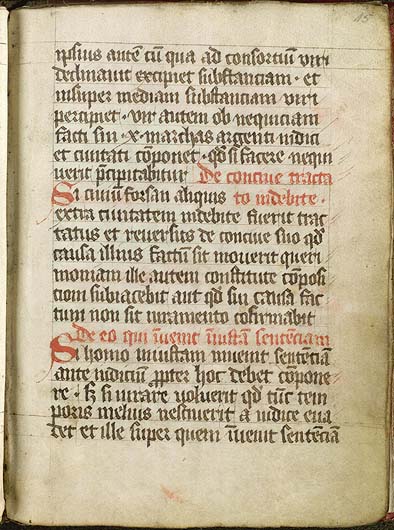 45
ipsius autē cū qua ad consortiū viri
declinauit excipiet substanciam · et
insuper mediam substanciam viri
percipiet · vir autem ob nequiciam
facti sui · x · marchas argenti iudici
et ciuitati cōponet · qd si facere nequi
uerit p̄cipitabitur De conciue tracta
Si ciuiū forsan aliquis to indebite ·
extra ciuitatem indebite fuerit trac
tatus et reuersus de conciue suo qd
causa illius factū sit mouerit queri
moniam ille autem constitute cōposi
cioni subiacebit aut qd sui causa fac
tum non sit iuramento cōfirmabit
De eo qui īuenit īiustā sentēciam
Si homo iniustam inuenit sentēciā
ante iudiciū ꝓpter hoc debet cōpone
re · sꝫ si iurare voluerit qd tūc tem
poris melius nesciuerit a iudice eua
det et ille super quem īuenit sentēciā